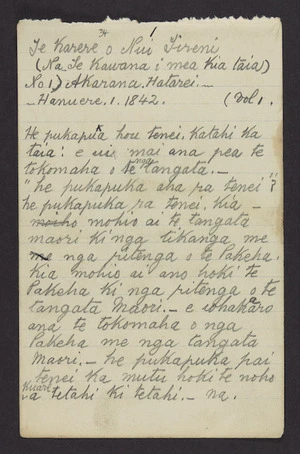 34 1
Te Karere o Nui Tireni
(Na Te Kawana i mea kia taia)
No 1) Akarana, Hatarei. —
— Hanuere. 1. 1842. (Vol 1.
He pukapuka hou tenei, katahi ka
taia: e ui mai ana pea te
tokomaha o te nga tangata. —
"he pukapuka aha ra tenei"?
he pukapuka ra tenei, kia —
moiho mohio ai te tangata
maori ki nga tikanga me
me nga ritenga o te Pakeha.
Kia mohio ai ano hoki te
Pakeha ki nga ritenga o te
tangata Maori. — e whakaaro
ana te tokomaha o nga
Pakeha me nga tangata
Maori. — he pukapuka pai
tenei ka mutu hoki te noho
kuare
a tetahi ki tetahi. — na.